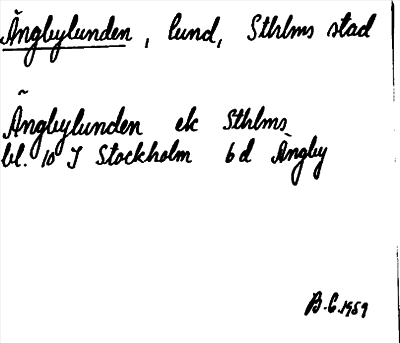 Ängbylunden, lund, Sthlms stad
~
Ängbylunden ek Sthlms
bl. 10 J Stockholm 6 d Ängby
B.C. 1959